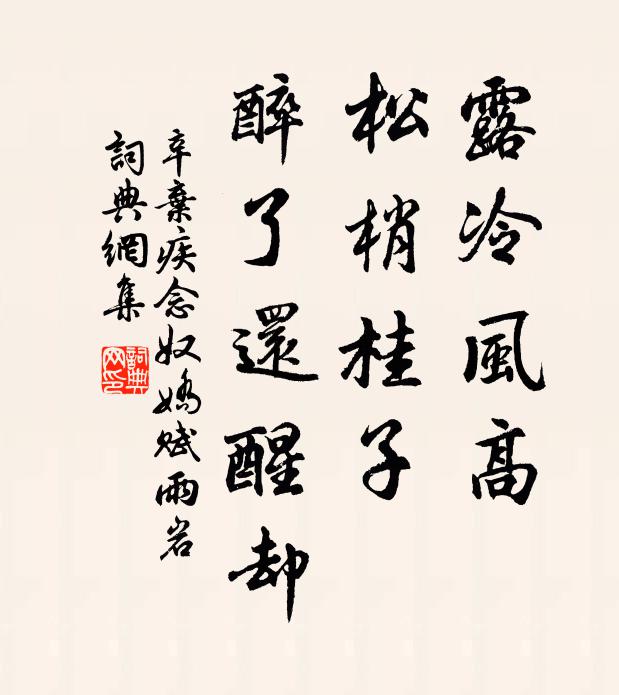 露冷風高
松梢桂子
醉了還醒却
辛棄疾念奴嬌賦雨岩
詞典網集
詞典
网印